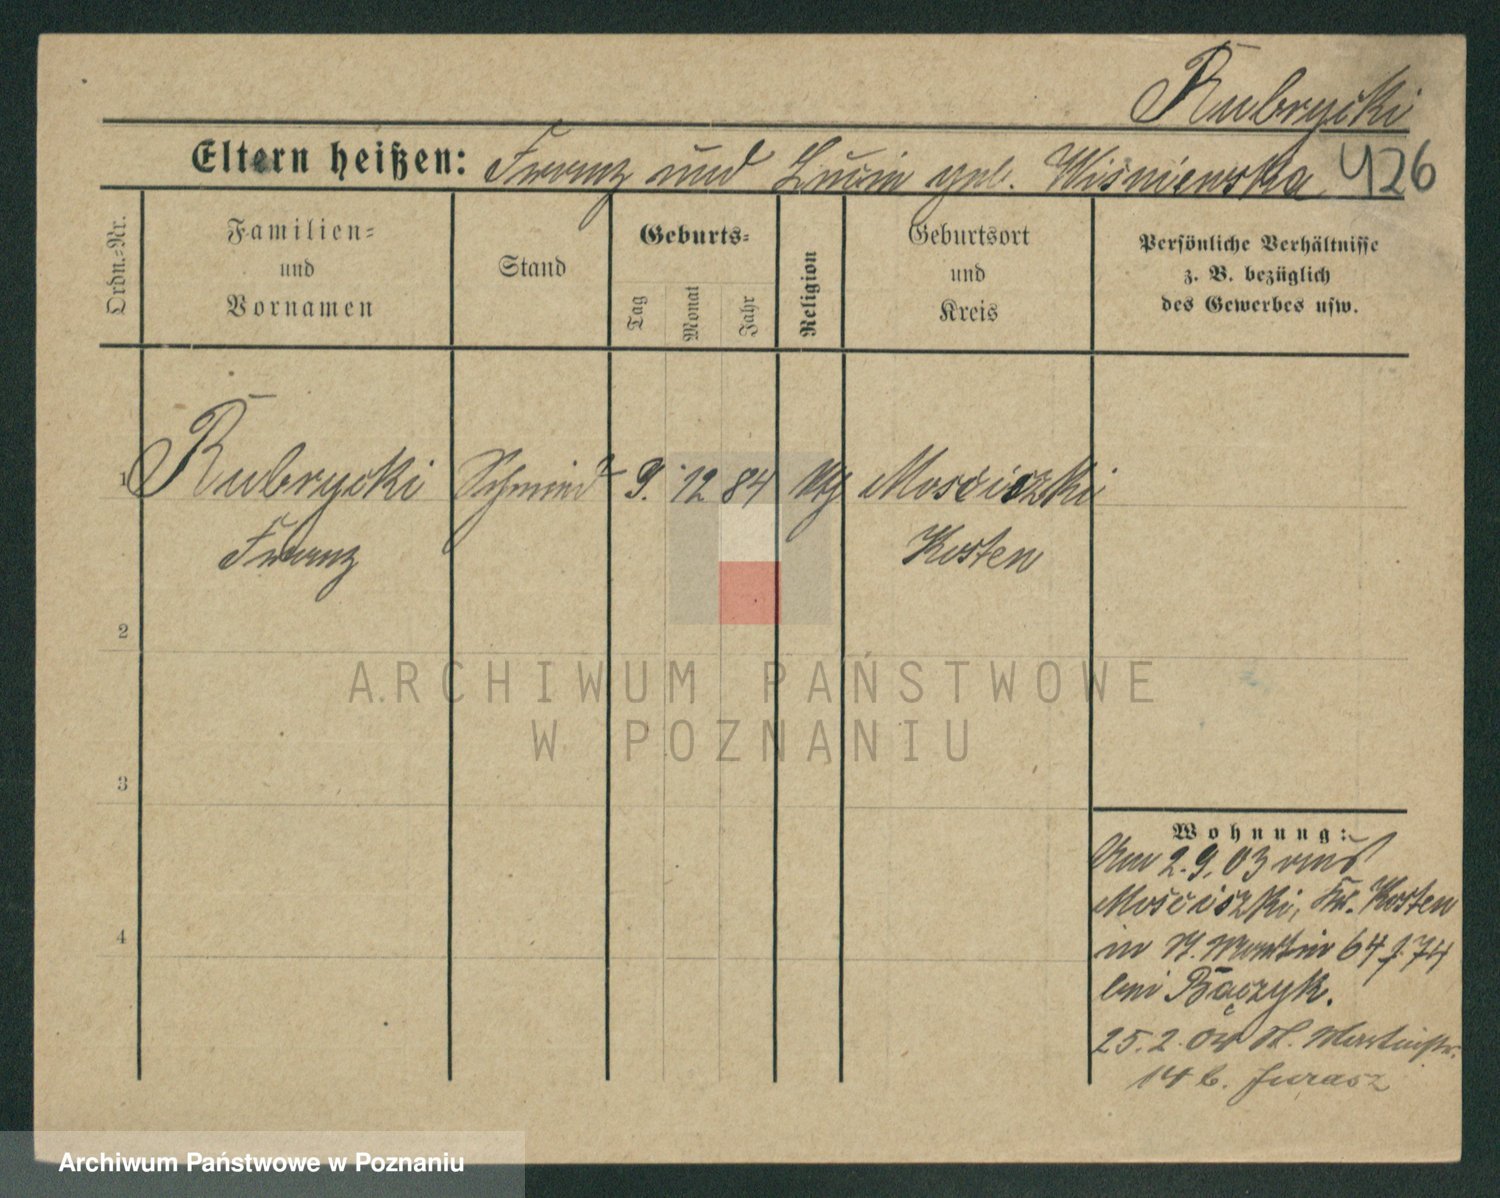 Rubrycki
Eltern heißen: Franz und Lucie geb. Wiśniewska 426
Ordn.-Nr.
Familien-
und
Vornamen
Stand
Geburts-
Tag
Monat
Jahr
Religion
Geburtsort
und
Kreis
Persönliche Verhältnisse
z. B. bezüglich
des Gewerbes usw.
1 Rubrycki Schmied 9. 12 84 kth Mościszki
Franz Kosten
2
3
4
Wohnung:
Am 2.9.03 aus
Mościszki, Kr. Kosten
in St. Martin 64 74
bei Bączyk.
25.2.04 St. Martinstr.
14 b. Jurasz
ARCHIWUM PAŃSTWOWE
W POZNANIU
Archiwum Państwowe w Poznaniu